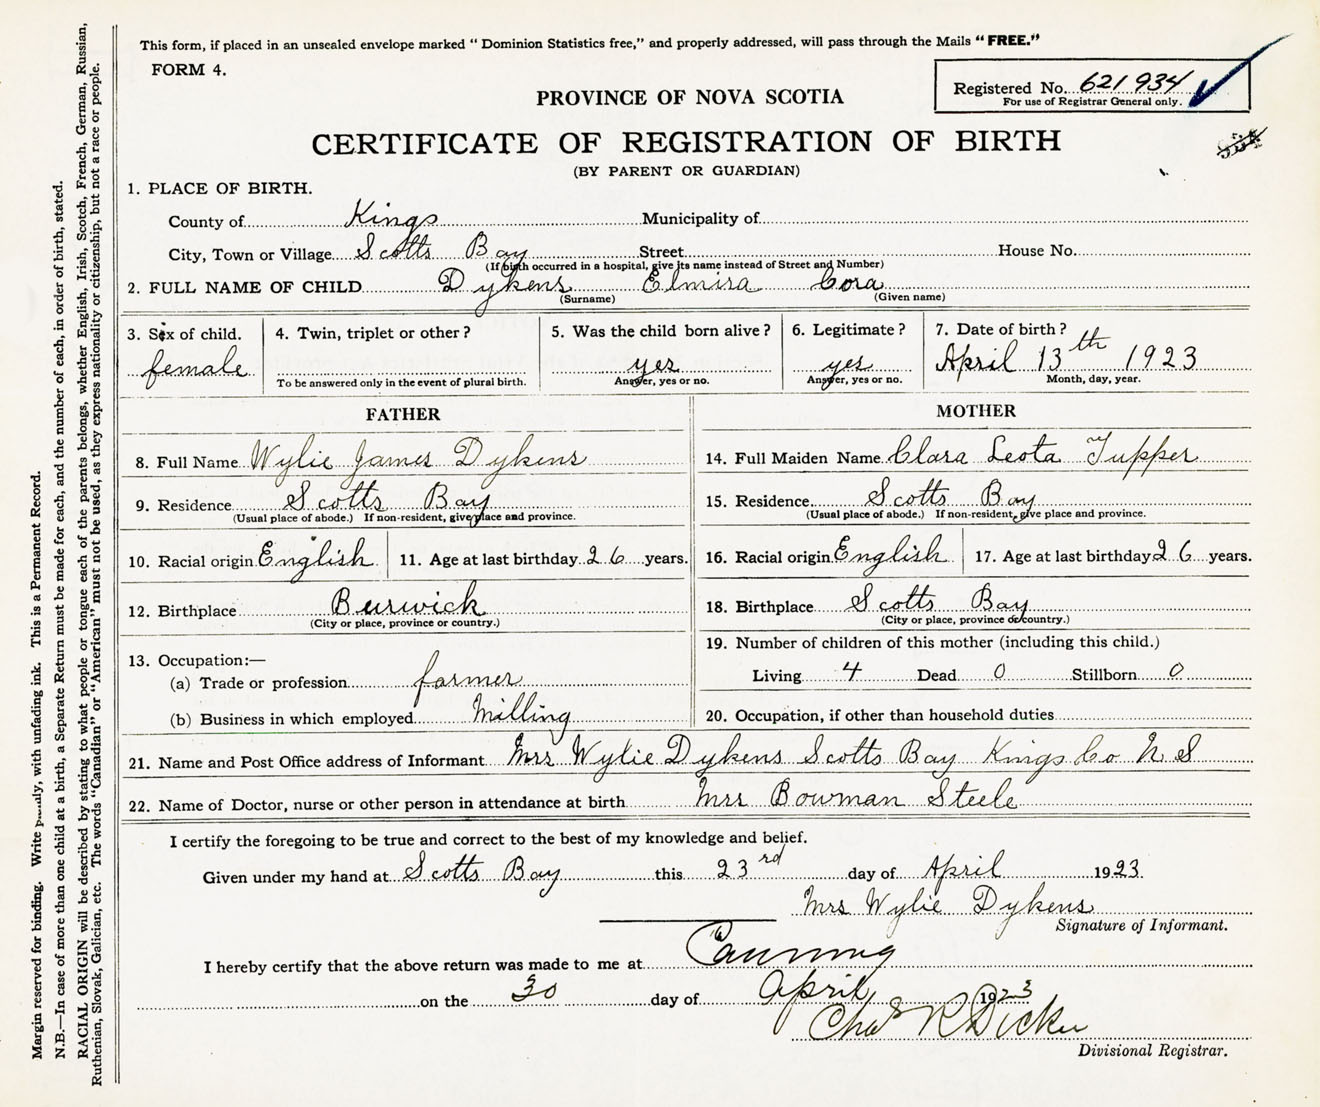 This form, if placed in an unsealed envelope marked "Dominion Statistics free," and properly addressed, will pass through the Mails "FREE."
FORM 4.
Registered No. 621934
For use of Registrar General only.
PROVINCE OF NOVA SCOTIA
CERTIFICATE OF REGISTRATION OF BIRTH
(BY PARENT OR GUARDIAN)
1. PLACE OF BIRTH.
County of Kings Municipality of
City, Town or Village Scotts Bay Street House No.
(If birth occurred in a hospital, give its name instead of Street and Number)
2. FULL NAME OF CHILD Dykens Elmira Cora
(Surname) (Given name)
3. Sex of child. 4. Twin, triplet or other? 5. Was the child born alive? 6. Legitimate? 7. Date of birth?
female yes yes April 13th 1923
To be answered only in the event of plural birth. Answer, yes or no. Answer, yes or no. Month, day, year.
FATHER MOTHER
8. Full Name Wylie James Dykens 14. Full Maiden Name Clara Leota Tupper
9. Residence Scotts Bay 15. Residence Scotts Bay
(Usual place of abode.) If non-resident, give place and province. (Usual place of abode.) If non-resident, give place and province.
10. Racial origin English 11. Age at last birthday 26 years. 16. Racial origin English 17. Age at last birthday 26 years.
12. Birthplace Burwick 18. Birthplace Scotts Bay
(City or place, province or country.) (City or place, province or country.)
19. Number of children of this mother (including this child.)
13. Occupation:—
(a) Trade or profession farmer Living 4 Dead 0 Stillborn 0
(b) Business in which employed Milling 20. Occupation, if other than household duties
21. Name and Post Office address of Informant Mrs Wylie Dykens Scotts Bay Kings Co N S
22. Name of Doctor, nurse or other person in attendance at birth Mrs Bowman Steele
I certify the foregoing to be true and correct to the best of my knowledge and belief.
Given under my hand at Scotts Bay this 23rd day of April 1923.
Mrs Wylie Dykens
Signature of Informant.
I hereby certify that the above return was made to me at Canning
on the 30 day of April 1923
Chas R Dickie
Divisional Registrar.
Margin reserved for binding. Write with unfading ink. This is a Permanent Record.
N.B.—In case of more than one child at a birth, a Separate Return must be made for each, and the number of each, in order of birth, stated.
RACIAL ORIGIN will be described by stating to what people or tongue each of the parents belongs, whether English, Irish, Scotch, French, German, Russian,
Ruthenian, Slovak, Galician, etc. The words "Canadian" or "American" must not be used, as they express nationality or citizenship, but not a race or people.